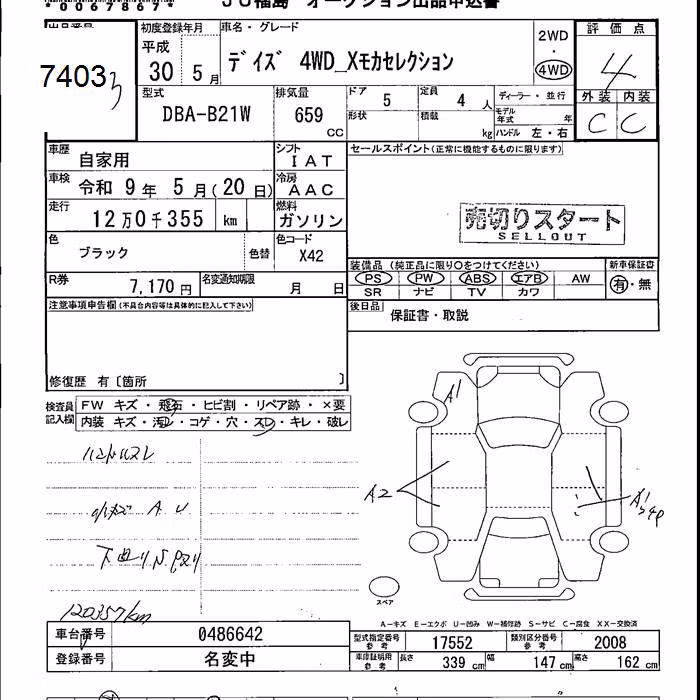 JU福島 オークション出品申込書
出品番号
7403
3
初度登録年月
平成
30 5月
車名・グレード
デイズ 4WD_Xモカセレクション
2WD
・
4WD
評価点
4
外装 内装
C C
型式
DBA-B21W
排気量
659
CC
ドア
5
定員
4 人
形状
積載
kg
ディーラー・並行
モデル年式 年
ハンドル 左・右
車歴
自家用
シフト
IAT
車検
令和 9年 5月(20日)
冷房
AAC
走行
12万0千355 km
燃料
ガソリン
色
ブラック
色替
色コード
X42
R券
7,170円
名変通知期限
月 日
セールスポイント(正常に機能するものに限ります)
売切りスタート
SELLOUT
装備品 (純正品に限り○をつけてください)
PS PW ABS エアB AW
SR ナビ TV カワ
新車保証書
有・無
後日品
保証書・取説
注意事項申告欄(不具合内容等は具体的に記入して下さい)
修復歴 有〔箇所 〕
検査員記入欄
FW キズ・飛石・ヒビ割・リペア跡・×要
内装 キズ・汚レ・コゲ・穴・スレ・キレ・破レ
ハンドルスレ
小キズ A U
下廻りS
120357km
A1
A2
A1
スペア
A-キズ E-エクボ U-凹み W-補修跡 S-サビ C-腐食 XX-交換済
車台番号
0486642
登録番号
名変中
型式指定番号
参考
17552
類別区分番号
参考
2008
車庫証明用
参考
長さ
339 cm
幅
147 cm
高さ
162 cm